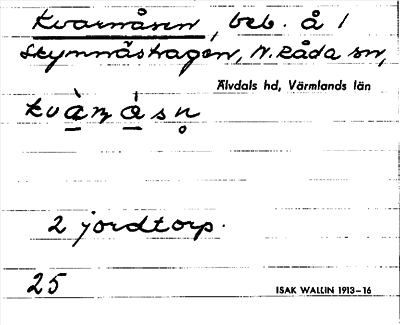 Kvarnåsen, beb. å /
Skymnäshagen, N. Råda sn,
Älvdals hd, Värmlands län
kvὰɳå̀sn̥
2 jordtorp.
25
ISAK WALLIN 1913–16